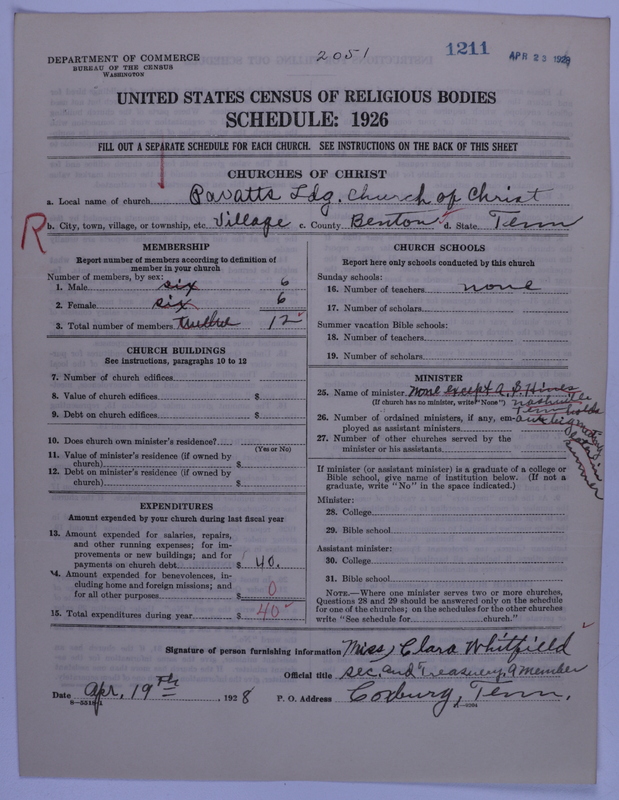 DEPARTMENT OF COMMERCE
BUREAU OF THE CENSUS
WASHINGTON
2051
1211
APR 23 1928
UNITED STATES CENSUS OF RELIGIOUS BODIES
SCHEDULE: 1926
FILL OUT A SEPARATE SCHEDULE FOR EACH CHURCH. SEE INSTRUCTIONS ON THE BACK OF THIS SHEET
CHURCHES OF CHRIST
a. Local name of church Pavatts Ldg. Church of Christ
R
b. City, town, village, or township, etc. Village c. County Benton d. State Tenn
MEMBERSHIP
Report number of members according to definition of
member in your church
Number of members, by sex:
1. Male six 6
2. Female six 6
3. Total number of members twelve 12
CHURCH BUILDINGS
See instructions, paragraphs 10 to 12
7. Number of church edifices
8. Value of church edifices $
9. Debt on church edifices $
10. Does church own minister's residence?
(Yes or No)
11. Value of minister's residence (if owned by
church) $
12. Debt on minister's residence (if owned by
church) $
EXPENDITURES
Amount expended by your church during last fiscal year
13. Amount expended for salaries, repairs,
and other running expenses; for im-
provements or new buildings; and for
payments on church debt $ 40.
14. Amount expended for benevolences, in-
cluding home and foreign missions; and
for all other purposes $ 0
15. Total expenditures during year $ 40
CHURCH SCHOOLS
Report here only schools conducted by this church
Sunday schools:
16. Number of teachers none
17. Number of scholars
Summer vacation Bible schools:
18. Number of teachers
19. Number of scholars
MINISTER
25. Name of minister None except A. B. Hines
(If church has no minister, write "None") Nashville
Tenn holds
26. Number of ordained ministers, if any, em-
ployed as assistant ministers
27. Number of other churches served by the
minister or his assistants
If minister (or assistant minister) is a graduate of a college or
Bible school, give name of institution below. (If not a
graduate, write "No" in the space indicated.)
Minister:
28. College
29. Bible school
Assistant minister:
30. College
31. Bible school
NOTE.—Where one minister serves two or more churches,
Questions 28 and 29 should be answered only on the schedule
for one of the churches; on the schedules for the other churches
write "See schedule for church."
Signature of person furnishing information Miss Clara Whitfield
Official title Sec. and Treasury, a member
Date Apr. 19th 1928 P. O. Address Coxburg, Tenn.